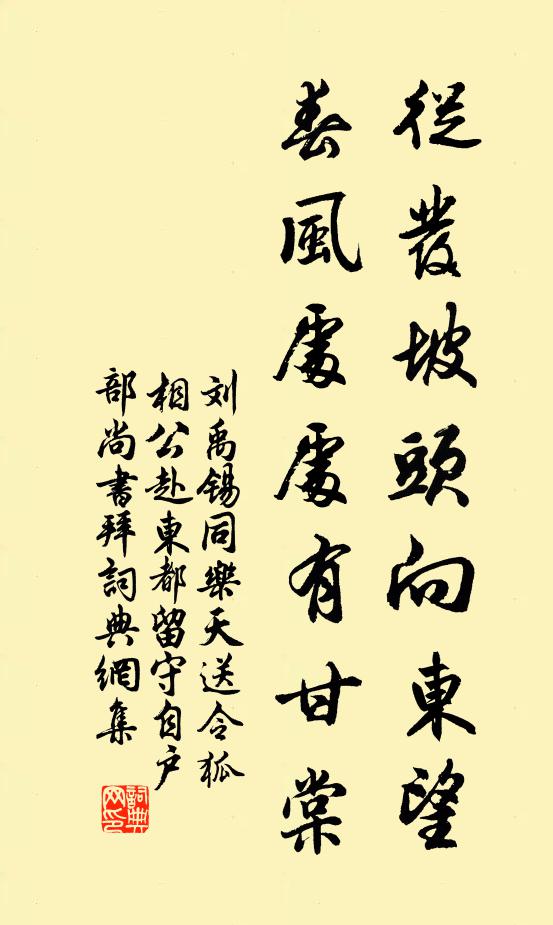 從發坡頭向東望
春風處處有甘棠
刘禹锡同樂天送令狐
相公赴東都留守自户
部尚書拜詞典網集
詞典
网印